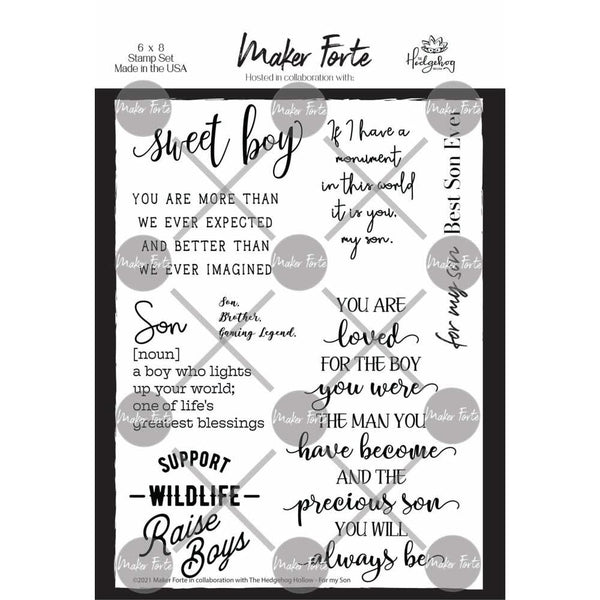 6 x 8
Stamp Set
Made in the USA
Maker Forte
Hosted in collaboration with:
The
Hedgehog
Hollow
sweet boy
YOU ARE MORE THAN
WE EVER EXPECTED
AND BETTER THAN
WE EVER IMAGINED
If I have a
monument
in this world
it is you,
my son.
for my son
Best Son Ever
Son
[noun]
a boy who lights
up your world;
one of life's
greatest blessings
Son.
Brother.
Gaming Legend.
YOU ARE
loved
FOR THE BOY
you were
THE MAN YOU
have become
AND THE
precious son
YOU WILL
always be
SUPPORT
WILDLIFE
Raise
Boys
©2021 Maker Forte in collaboration with The Hedgehog Hollow - For my Son
Maker Forte
Maker Forte
Maker Forte
Maker Forte
Maker Forte
Maker Forte
Maker Forte
Maker Forte
Maker Forte
Maker Forte
Maker Forte
Maker Forte